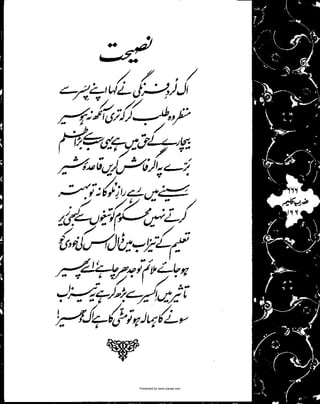 نصیحت
اک لُردِ فرنگی نے کہا اپنے پسر سے
منظر وہ طلب کر کہ تری آنکھ نہ ہو سیر
بیچارے کے حق میں ہے یہی سب سے بڑا ظلم
برے پہ اگر فاش کریں قاعدۂ شیر
سینے میں رہے رازِ ملوکانہ تو بہتر
کرتے نہیں محکوم کو تیغوں سے کبھی زیر
تعلیم کے تیزاب میں ڈال اس کی خودی کو
ہو جائے ملائم تو جدھر چاہے اسے پھیر
تاثیر میں اکسیر سے بڑھ کر ہے یہ تیزاب
سونے کا ہمالہ ہو تو مٹی کا ہے اک ڈھیر!
ضربِ کلیم